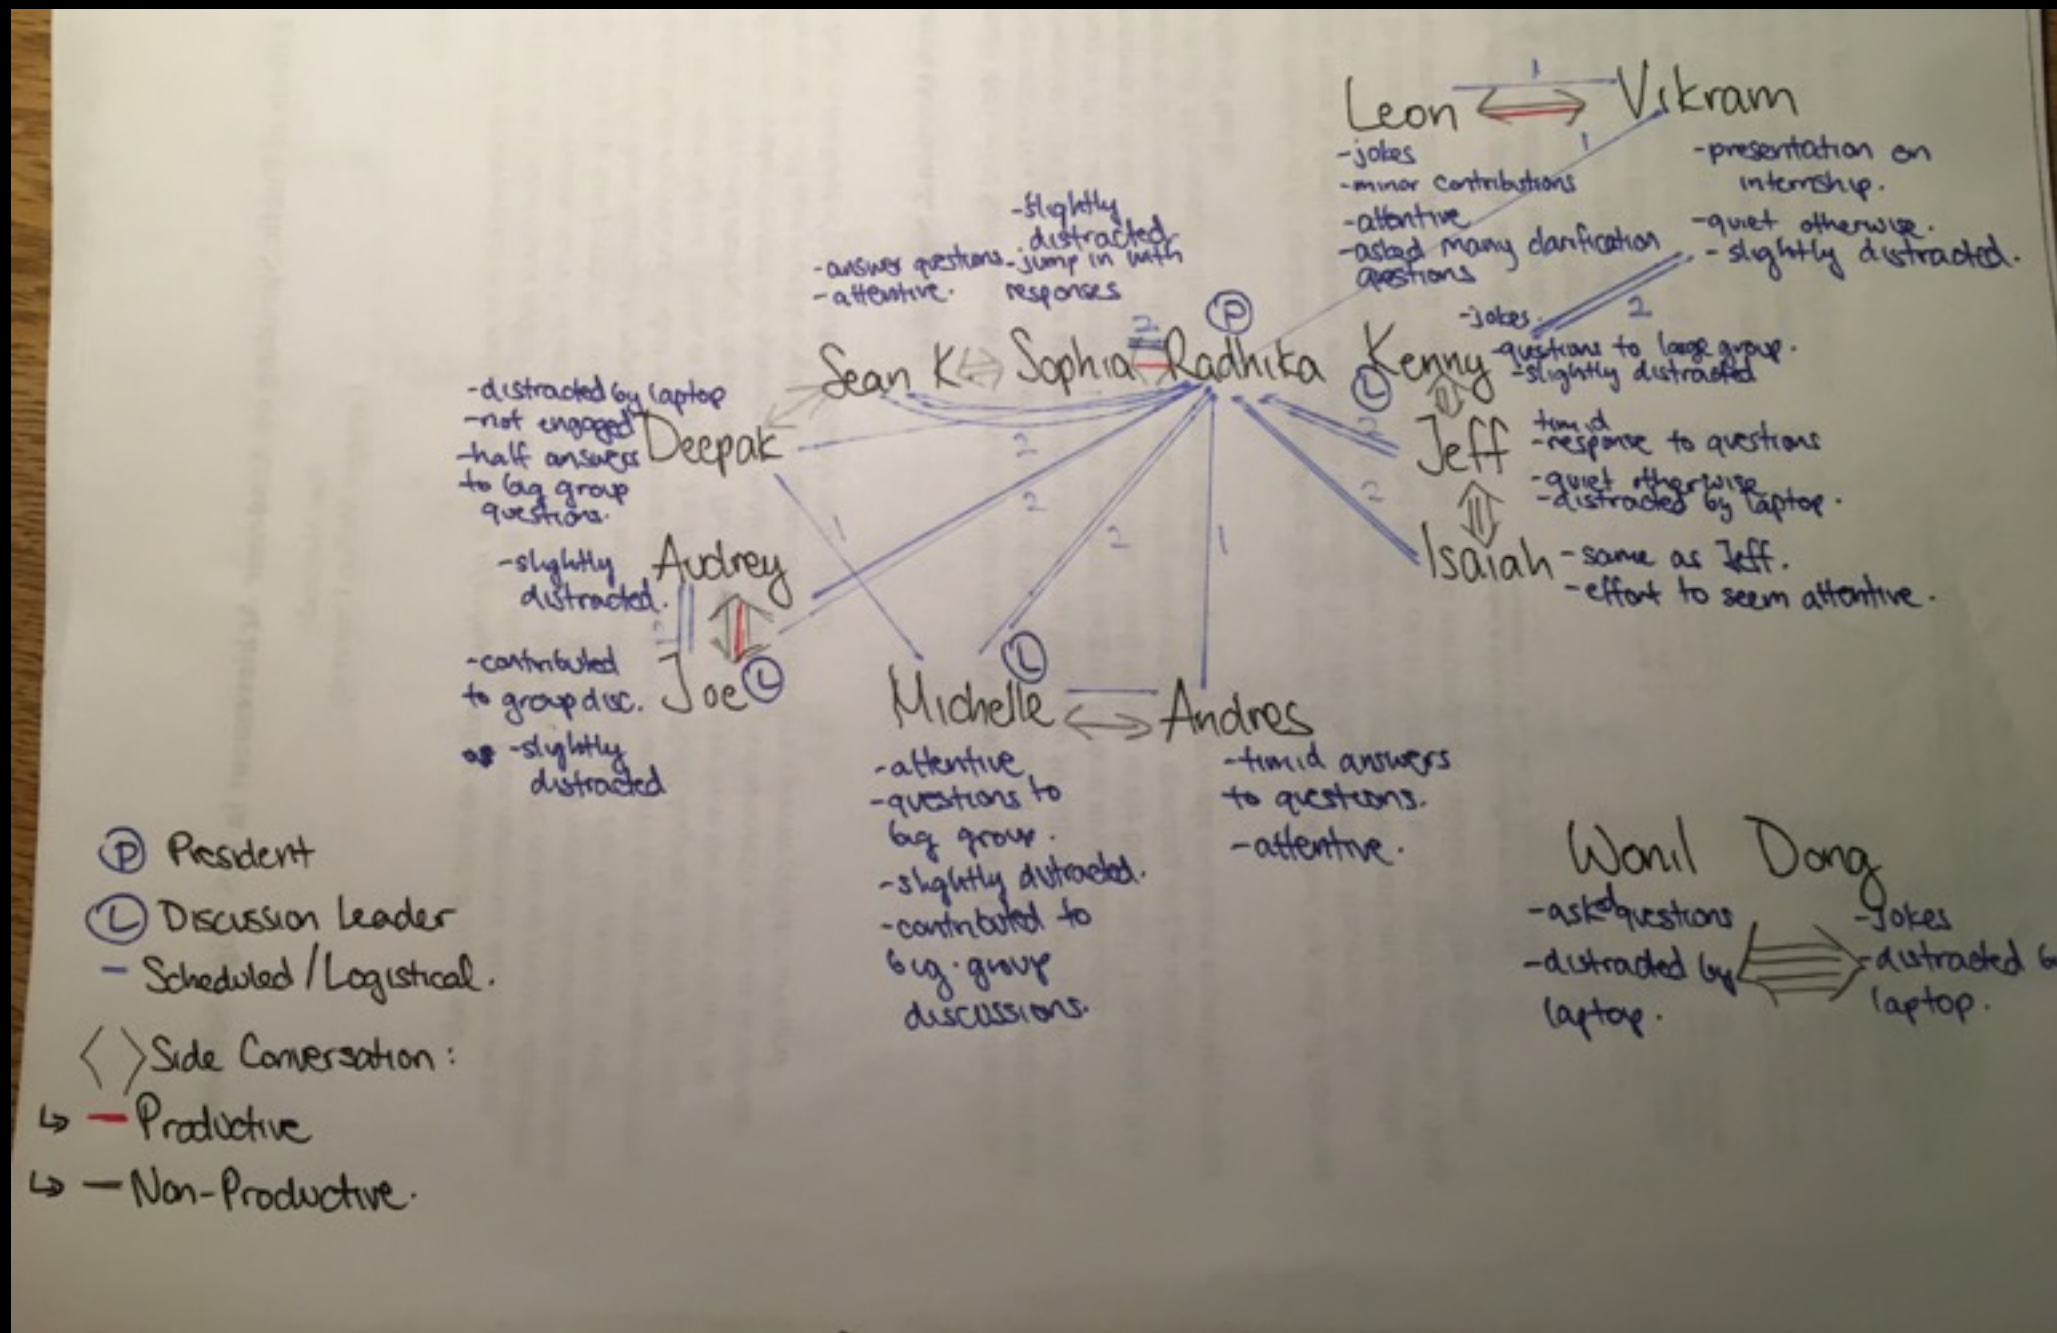 Leon
Vikram
1
1
-jokes
-minor contributions
-attentive
-asked many clarification
questions
-presentation on
internship.
-quiet otherwise.
-slightly distracted.
2
-answer questions
-attentive.
-slightly
distracted
-jump in with
responses
P
2
Sean K.
Sophia
Radhika
Kenny
L
-jokes.
-questions to large group.
-slightly distracted
-distracted by laptop
-not engaged
-half answers
to big group
questions.
Deepak
2
2
2
1
2
1
2
Jeff
timid
-response to questions
-quiet otherwise
-distracted by laptop.
Isaiah
-same as Jeff.
-effort to seem attentive.
Audrey
-slightly
distracted.
Joe
L
-contributed
to group disc.
-slightly
distracted
Michelle
L
-attentive
-questions to
big group.
-slightly distracted.
-contributed to
big group
discussions.
Andres
-timid answers
to questions.
-attentive.
Wonil
-asked questions
-distracted by
laptop.
Dong
-Jokes
-distracted b
laptop.
P President
L Discussion Leader
- Scheduled/Logistical.
< > Side Conversation:
↳ — Productive
↳ — Non-Productive.